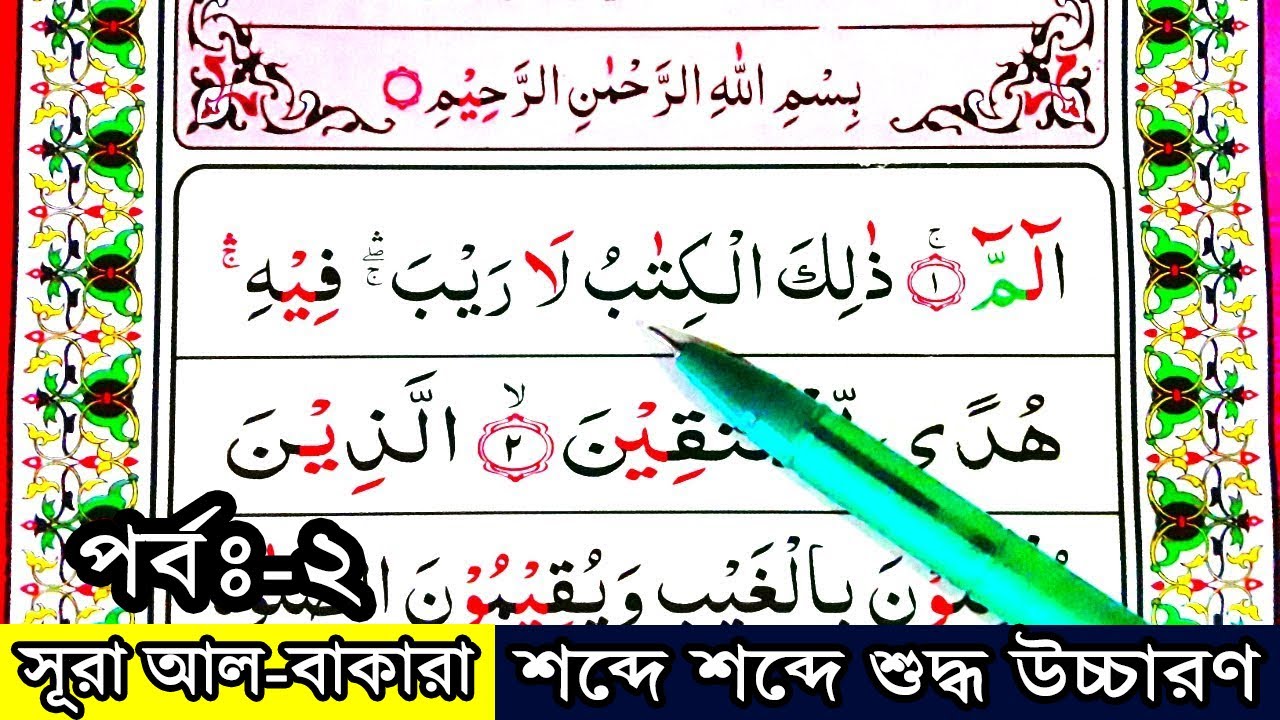 بِسْمِ اللّٰهِ الرَّحْمٰنِ الرَّحِيْمِ
الٓمّٓ ۚ ١ ذٰلِكَ الْكِتٰبُ لَا رَيْبَ ۛۖۚ فِيْهِ ۛۚ
هُدًى ۙ ٢ الَّذِيْنَ
بِالْغَيْبِ وَيُقِيْمُوْنَ
পর্বঃ-২
সূরা আল-বাকারা শব্দে শব্দে শুদ্ধ উচ্চারণ